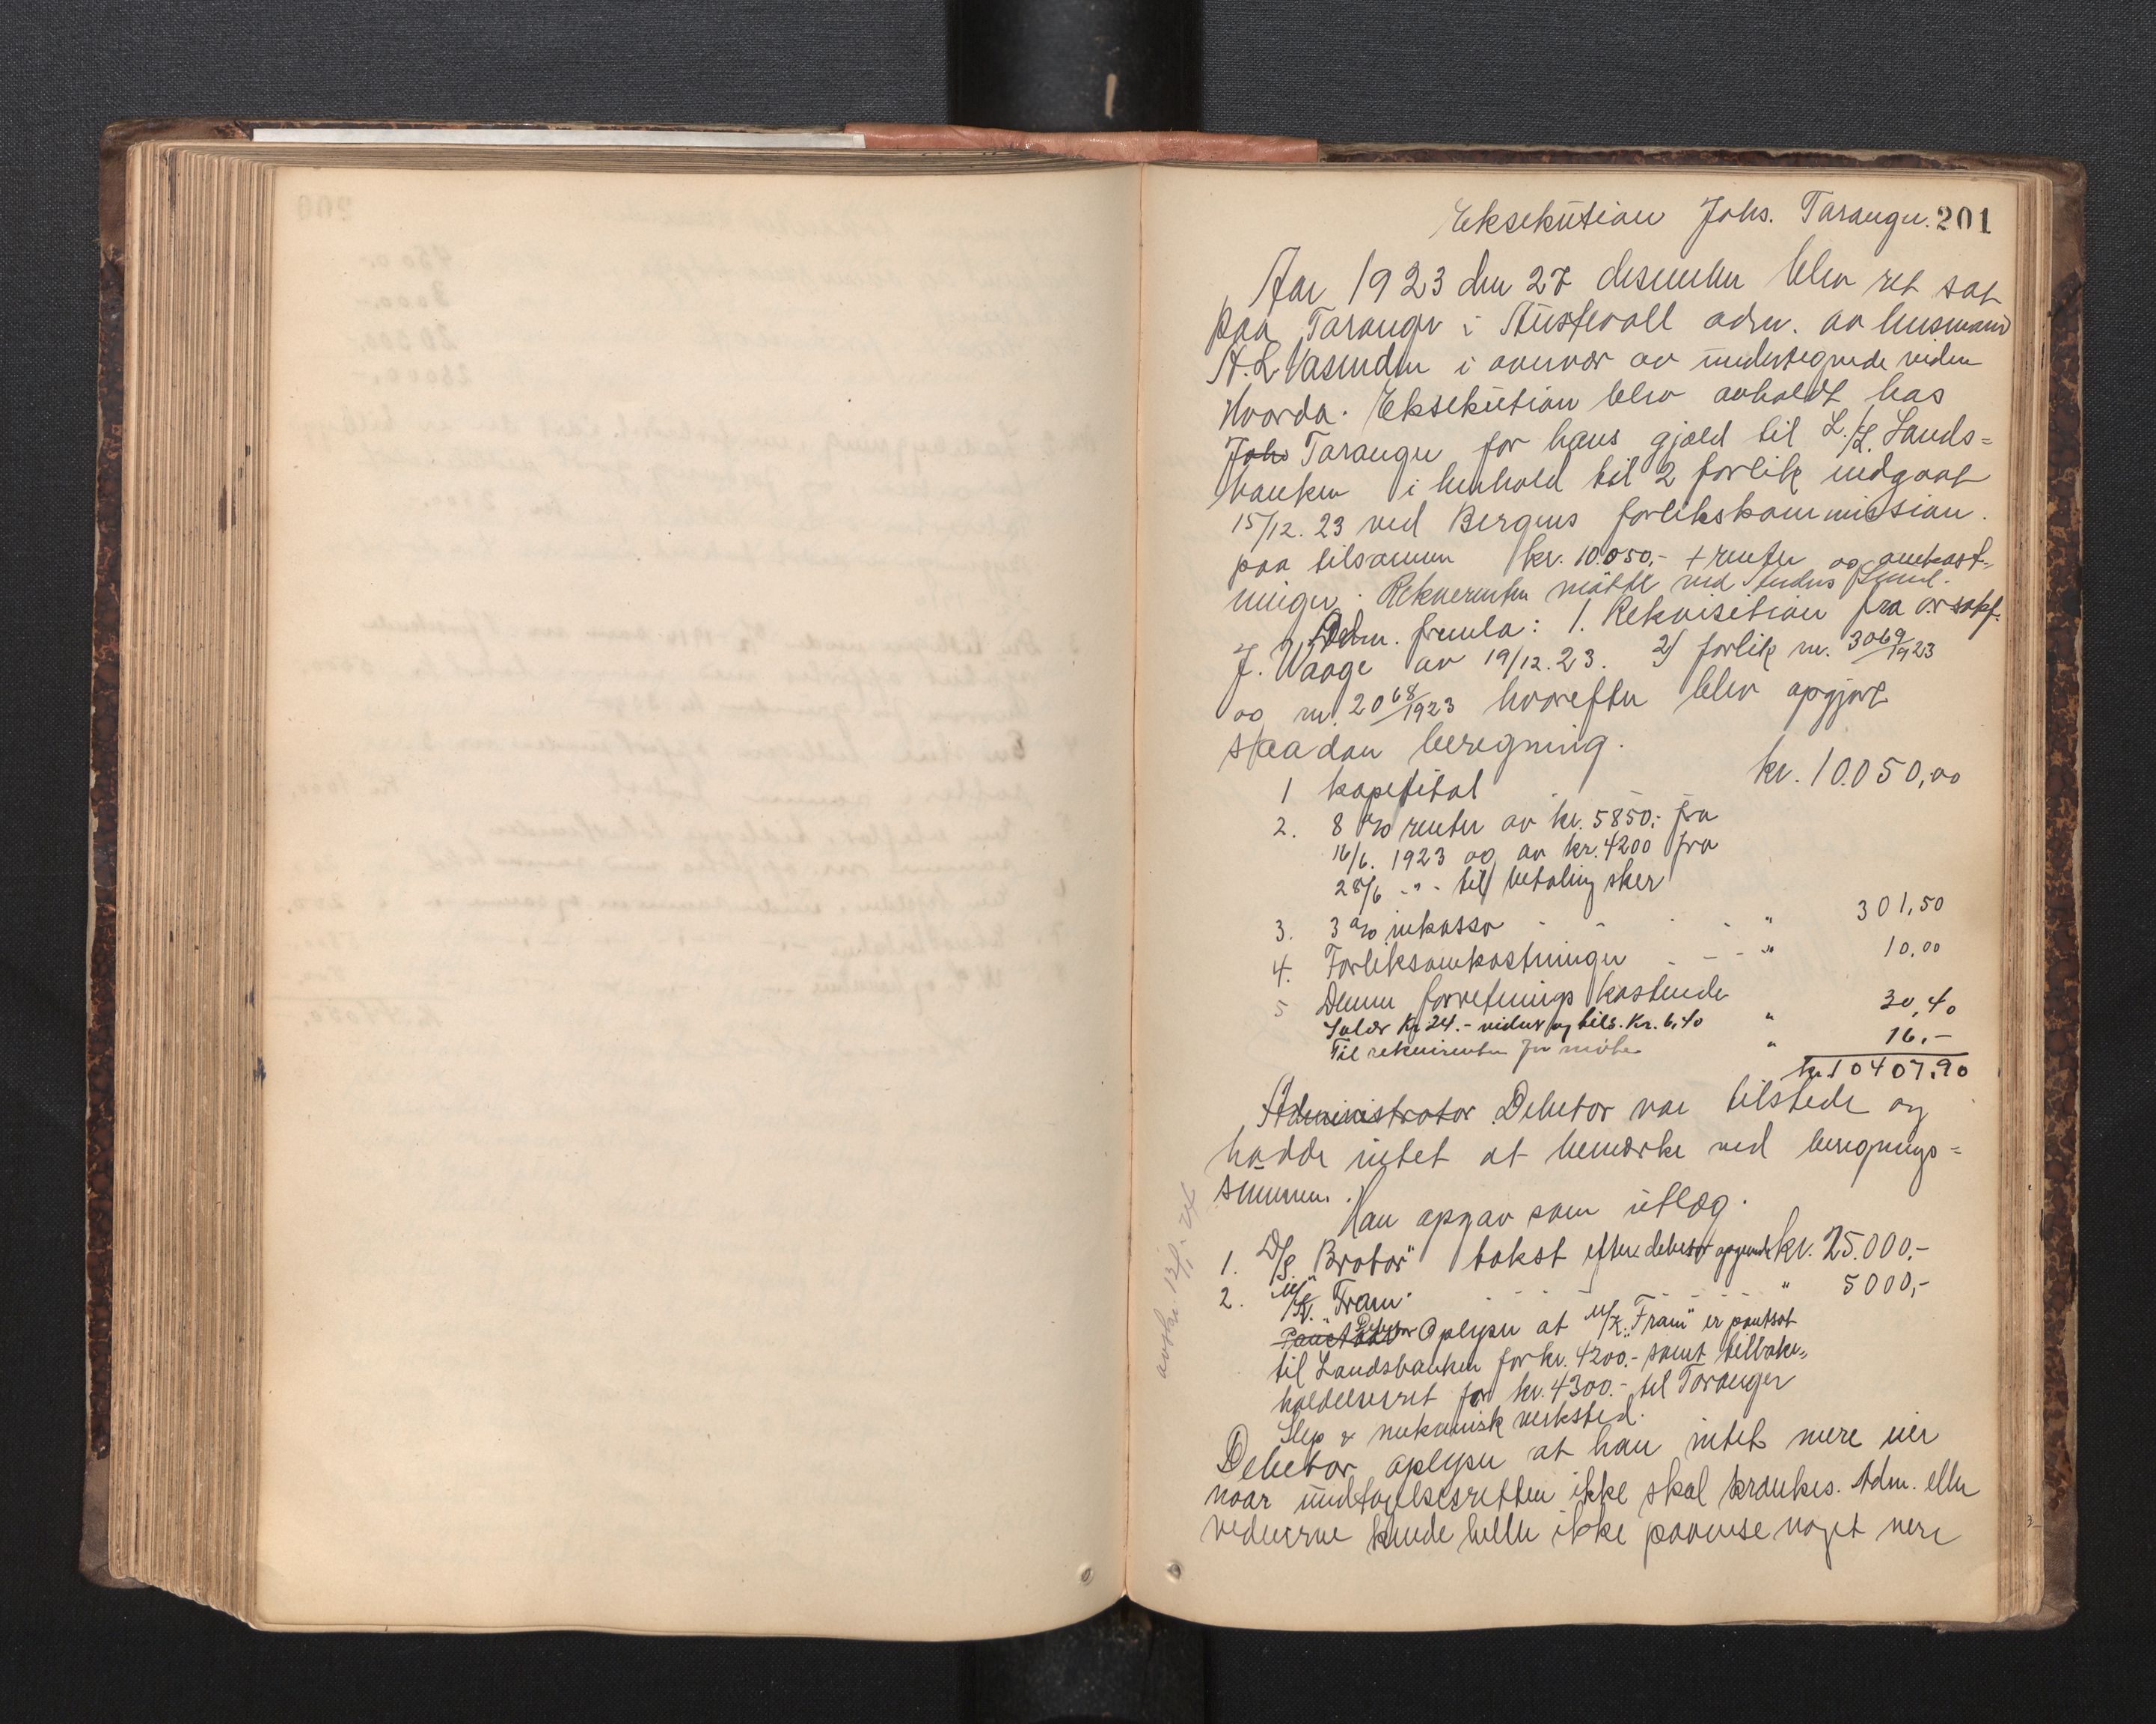 Eksekution Johs. Taranger. 201
Aar 1923 den 27 desember blev ret sat
paa Taranger i Austevoll adm. av lensmand
A. L Vasenden i overvær av undertegnede vidner
Hvorda. Eksekution blev avholdt hos
Johs Taranger for hans gjæld til L/L. Lands=
banken i henhold til 2 forlik indgaat
15/12. 23 ved Bergens forlikskommission.
paa tilsammen kr. 10.050,- + renter og omkost-
ninger. Rekvirenten mötte ved
Adm. fremla: 1. Rekvisition fra o.r.sakf.
J. Waage av 19/12. 23. 2) forlik nr. 3069/1923
og nr. 2068/1923 hvorefter blev opgjort
saadan beregning.
1 kapetital kr. 10.050,00
2. 8 % renter av kr. 5850,- fra
16/6. 1923 og av kr. 4200 fra
28/6 - " - til betaling sker
3. 3 % inkasso - - - - " 301,50
4. Forliksomkostninger - - - " 10,00
5 Denne forretnings kostende
Salær Kr. 24.- vidner og bils. Kr. 6,40 " 30,40
Til rekvirenten for möte " 16.-
kr. 10407,90
Administrator Debetor var tilstede og
hadde intet at bemerke ved beregnings=
summen.
Han opgav som utlæg.
1. D/S. "Brotor" takst efter debetor opgivende kr. 25.000,-
2. M/K. "Fram" - - - - - " 5000,-
Debetor Oplyser at M/K. "Fram" er pantsat
til Landsbanken for kr. 4200.- samt tilbake-
holdelsesret for kr. 4300.- til Taranger
Slip & mekanisk verksted.
Debetor oplyser at han intet mere eier
naar undtagelsesretten ikke skal krænkes. Adm. eller
vidnerne kunde heller ikke paavise noget mere